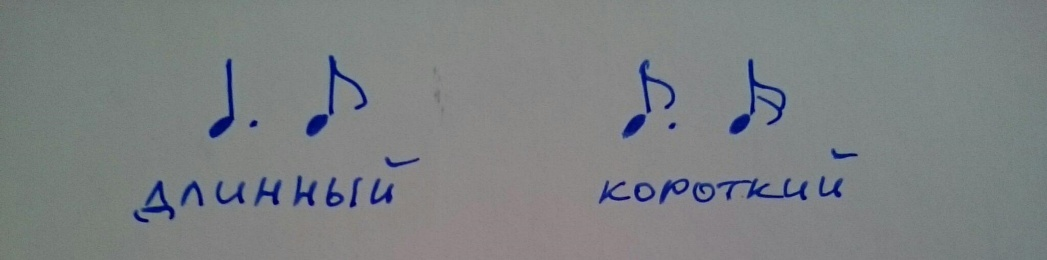 длинный короткий